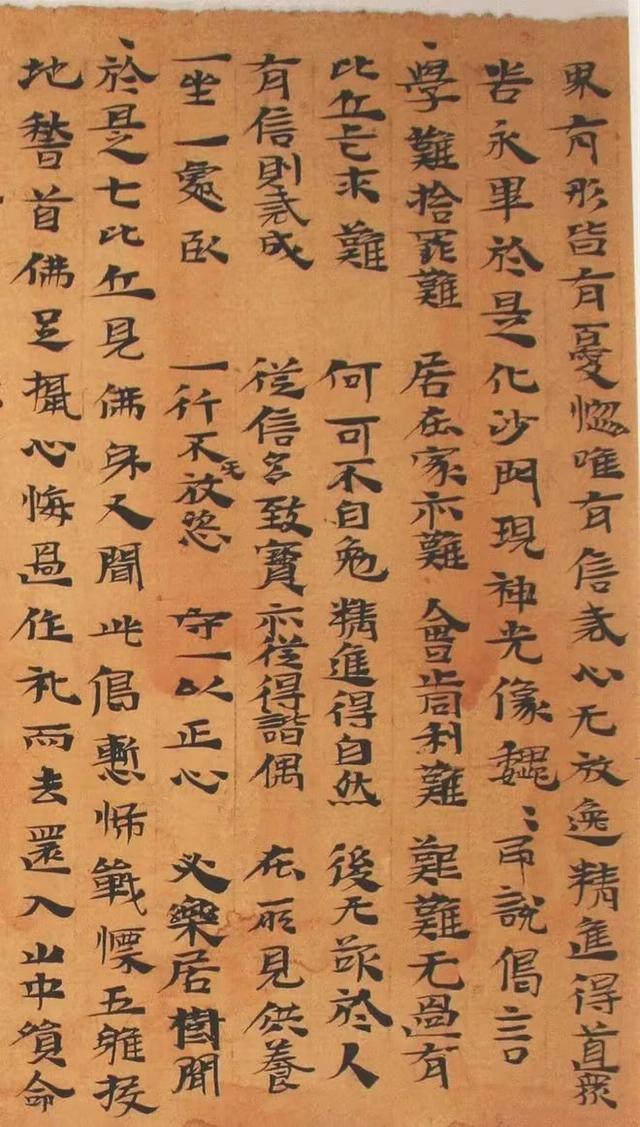 界有形皆有憂惱唯有信戒心无放逸精進得道衆
苦永畢於是化沙門現神光像巍〻即說偈言
學難捨罪難　居在家亦難　會止同利難　艱難无過有
比丘乞求難　何可不自勉　精進得自然　後无欲於人
有信則戒成　從信多致寶　亦從得諧偶　在所見供養
一坐一處臥　一行不放恣　守一以正心　必樂居樹間
於是七比丘見佛身又聞此偈慙怖戰慄五體投
地稽首佛足攝心悔過作礼而去還入山中命